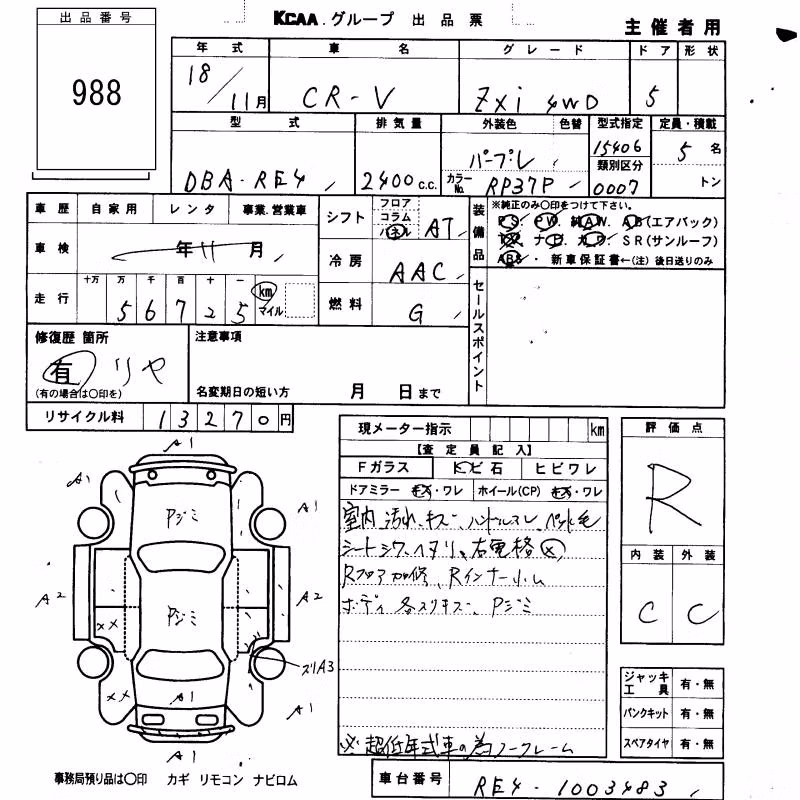 出品番号
988
KCAA.グループ 出品票
主催者用
年式 車名 グレード ドア 形状
18/11月 CR-V ZXi 4WD 5
型式 排気量 外装色 色替 型式指定 定員・積載
DBA-RE4 2400c.c. パープル 15406 5名
カラーNo. RP37P 類別区分 0007 トン
車歴 自家用 レンタ 事業.営業車
車検 年11月
走行 十万 万 千 百 十 一
56725 km マイル
シフト フロア コラム パネル AT
冷房 AAC
燃料 G
装備品 ※純正のみ〇印をつけて下さい。
PS. PW. 純AW. AB(エアバック)
TV. ナビ. カワ. SR(サンルーフ)
ABS・ 新車保証書←(注) 後日送りのみ
セールスポイント
修復歴 箇所
有 リヤ
(有の場合は〇印を)
注意事項
名変期日の短い方 月 日まで
リサイクル料 13270円
現メーター指示 km
【査定員記入】
Fガラス トビ石 ヒビワレ
ドアミラー キズ・ワレ ホイール(CP) キズ・ワレ
室内 汚れ、キズ、ハンドルスレ、ペット毛
シートシワ、ヘタリ、右電格×
Rフロア加修、Rインナー小ム
ボディ 各スリキズ、Pジミ
※超低年式車の為ノークレーム
評価点
R
内装 外装
C C
ジャッキ工具 有・無
パンクキット 有・無
スペアタイヤ 有・無
A1
A1 A1
Pジミ
A2 A2
Pジミ
××
スリA3
×× A1 A1
A1
事務局預り品は〇印 カギ リモコン ナビロム
車台番号 RE4-1003483